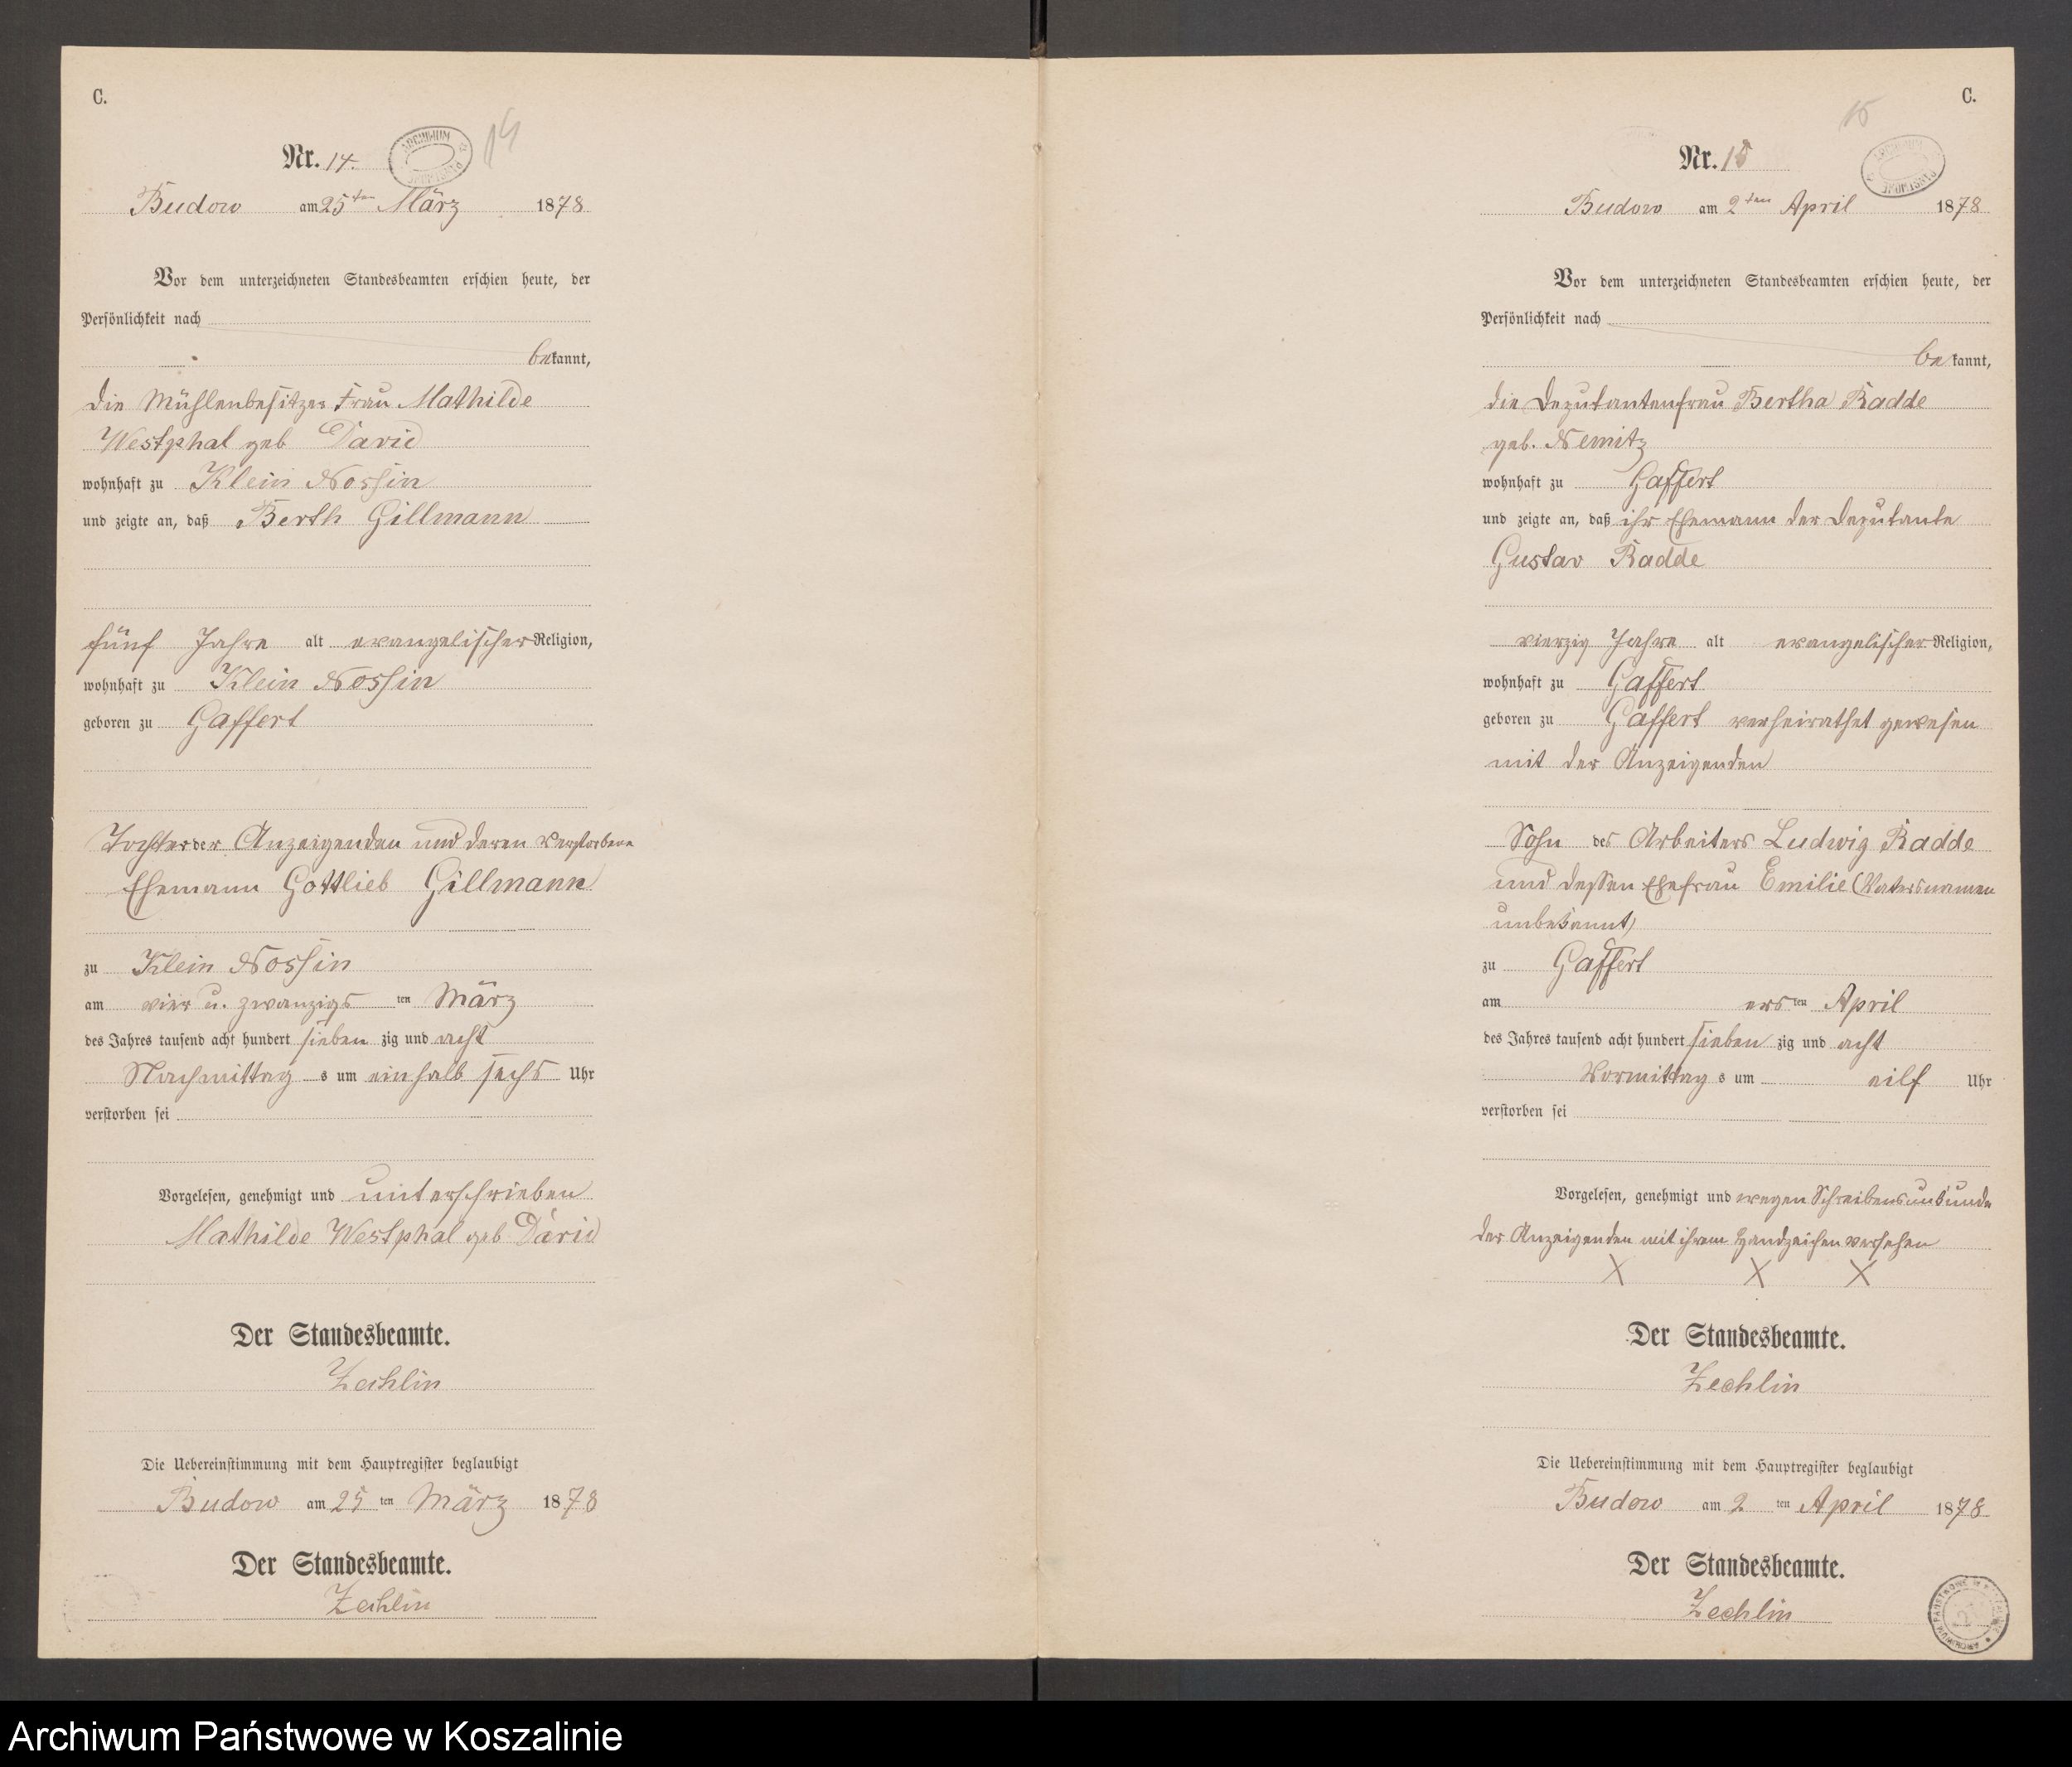 C.
Nr. 14.
ARCHIWUM PAŃSTWOWE
14
Budow am 25ten März 1878
Vor dem unterzeichneten Standesbeamten erschien heute, der
Persönlichkeit nach
bekannt,
die Mühlenbesitzer Frau Mathilde
Westphal geb David
wohnhaft zu Klein Nossin
und zeigte an, daß Berth Gillmann
fünf Jahre alt evangelischer Religion,
wohnhaft zu Klein Nossin
geboren zu Gaffert
Tochter der Anzeigenden und deren verstorbene
Ehemann Gottlieb Gillmann
zu Klein Nossin
am vier u. zwanzigsten März
des Jahres tausend acht hundert siebenzig und acht
Nachmittags um einhalb sechs Uhr
verstorben sei
Vorgelesen, genehmigt und unterschrieben
Mathilde Westphal geb David
Der Standesbeamte.
Zechlin
Die Uebereinstimmung mit dem Hauptregister beglaubigt
Budow am 25ten März 1878
Der Standesbeamte.
Zechlin
C.
15
Nr. 15
ARCHIWUM PAŃSTWOWE
Budow am 2ten April 1878
Vor dem unterzeichneten Standesbeamten erschien heute, der
Persönlichkeit nach
bekannt,
die Deputantenfrau Bertha Radde
geb. Nemitz
wohnhaft zu Gaffert
und zeigte an, daß ihr Ehemann der Deputante
Gustav Radde
vierzig Jahre alt evangelischer Religion,
wohnhaft zu Gaffert
geboren zu Gaffert verheirathet gewesen
mit der Anzeigenden
Sohn des Arbeiters Ludwig Radde
und dessen Ehefrau Emilie (Vatersnamen
unbekannt)
zu Gaffert
am ersten April
des Jahres tausend acht hundert siebenzig und acht
Vormittags um eilf Uhr
verstorben sei
Vorgelesen, genehmigt und wegen Schreibensunkunde
der Anzeigenden mit ihrem Handzeichen versehen
X X X
Der Standesbeamte.
Zechlin
Die Uebereinstimmung mit dem Hauptregister beglaubigt
Budow am 2ten April 1878
Der Standesbeamte.
Zechlin
Archiwum Państwowe w Koszalinie